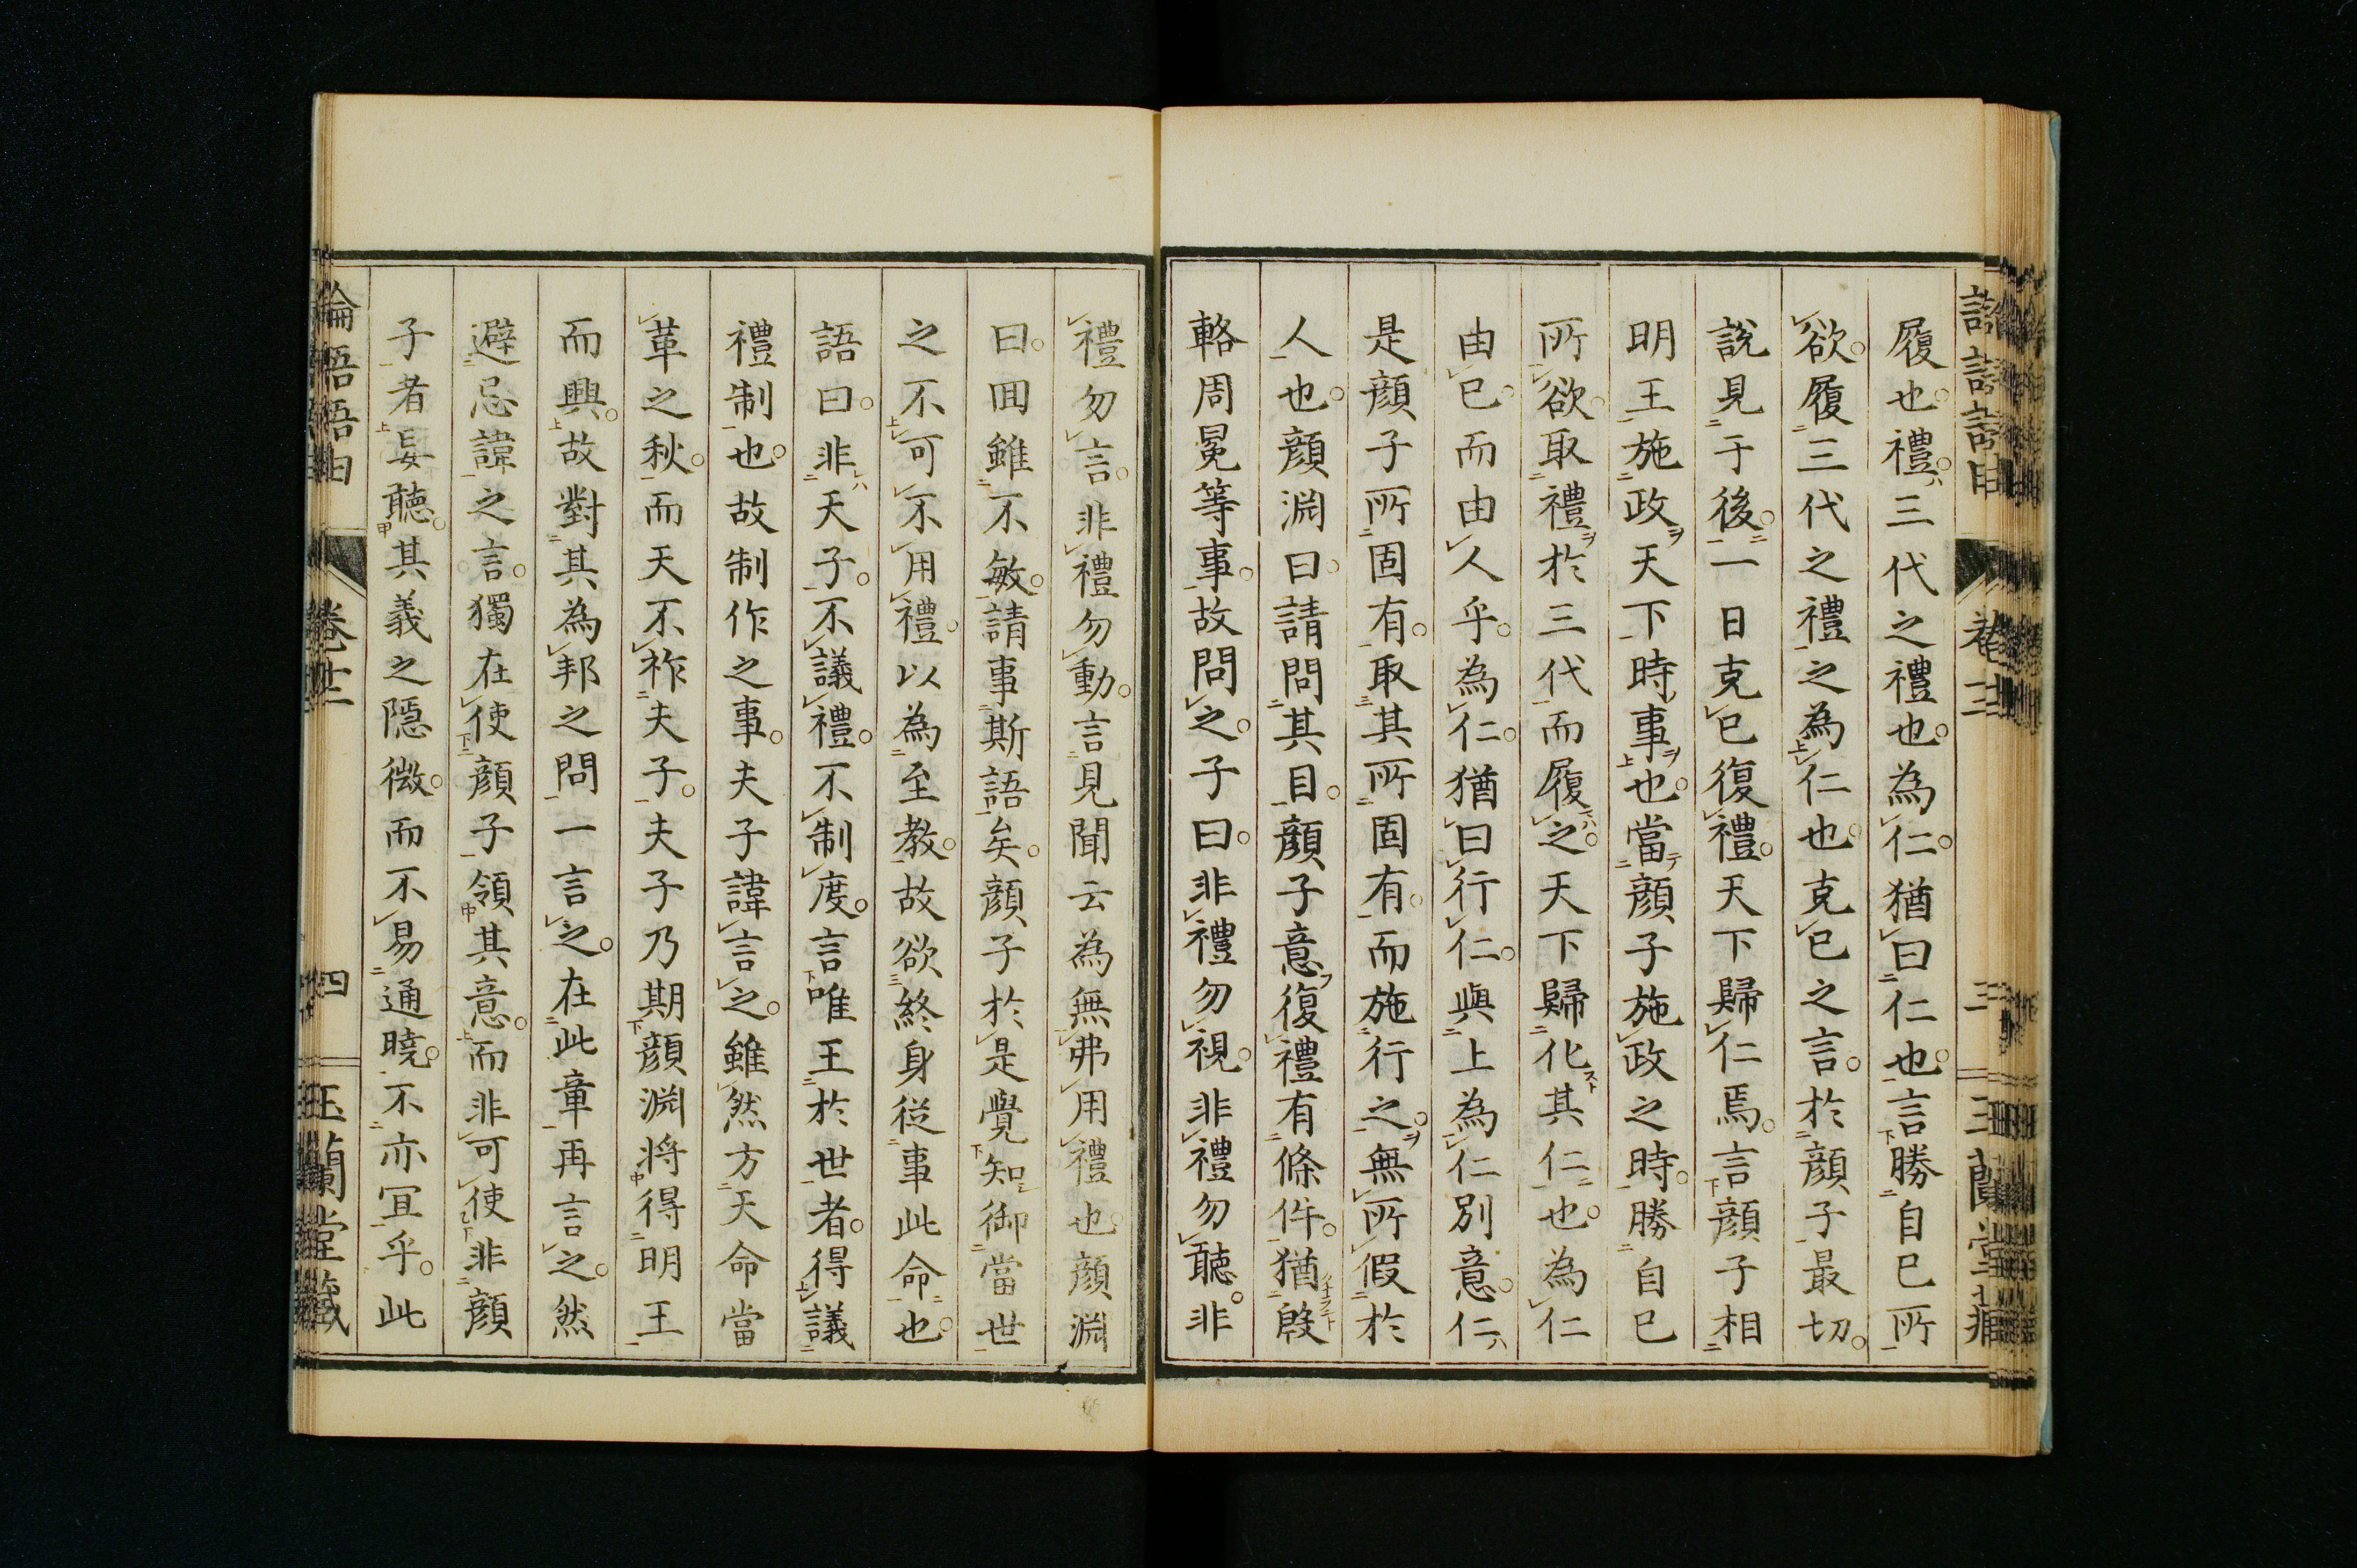 履也禮三代之禮也為仁猶曰仁也言勝自已所
欲履三代之禮之為仁也克已之言於顔子最切
說見于後一日克已復禮天下歸仁焉言顔子相
明王施政天下時事也當顔子施政之時勝自已
所欲取禮於三代而履之天下歸化其仁也為仁
由已而由人乎為仁猶曰行仁與上為仁別意仁
是顔子所固有取其所固有而施行之無所假於
人也顔淵曰請問其目顔子意復禮有條件猶殷
輅周冕等事故問之子曰非禮勿視非禮勿聽非
禮勿言非禮勿動言見聞云為無弗用禮也顔淵
曰回雖不敏請事斯語矣顔子於是覺知御當世
之不可不用禮以為至教故欲終身從事此命也
語曰非天子不議禮不制度言唯王於世者得議
禮制也故制作之事夫子諱言之雖然方天命當
革之秋而天不祚夫子夫子乃期顔淵将得明王
而興故對其為邦之問一言之在此章再言之然
避忌諱之言獨在使顔子領其意而非可使非顔
子者妄聽其義之隱微而不易通曉不亦宜乎此
論語語由 卷十二 四 玉蘭堂藏